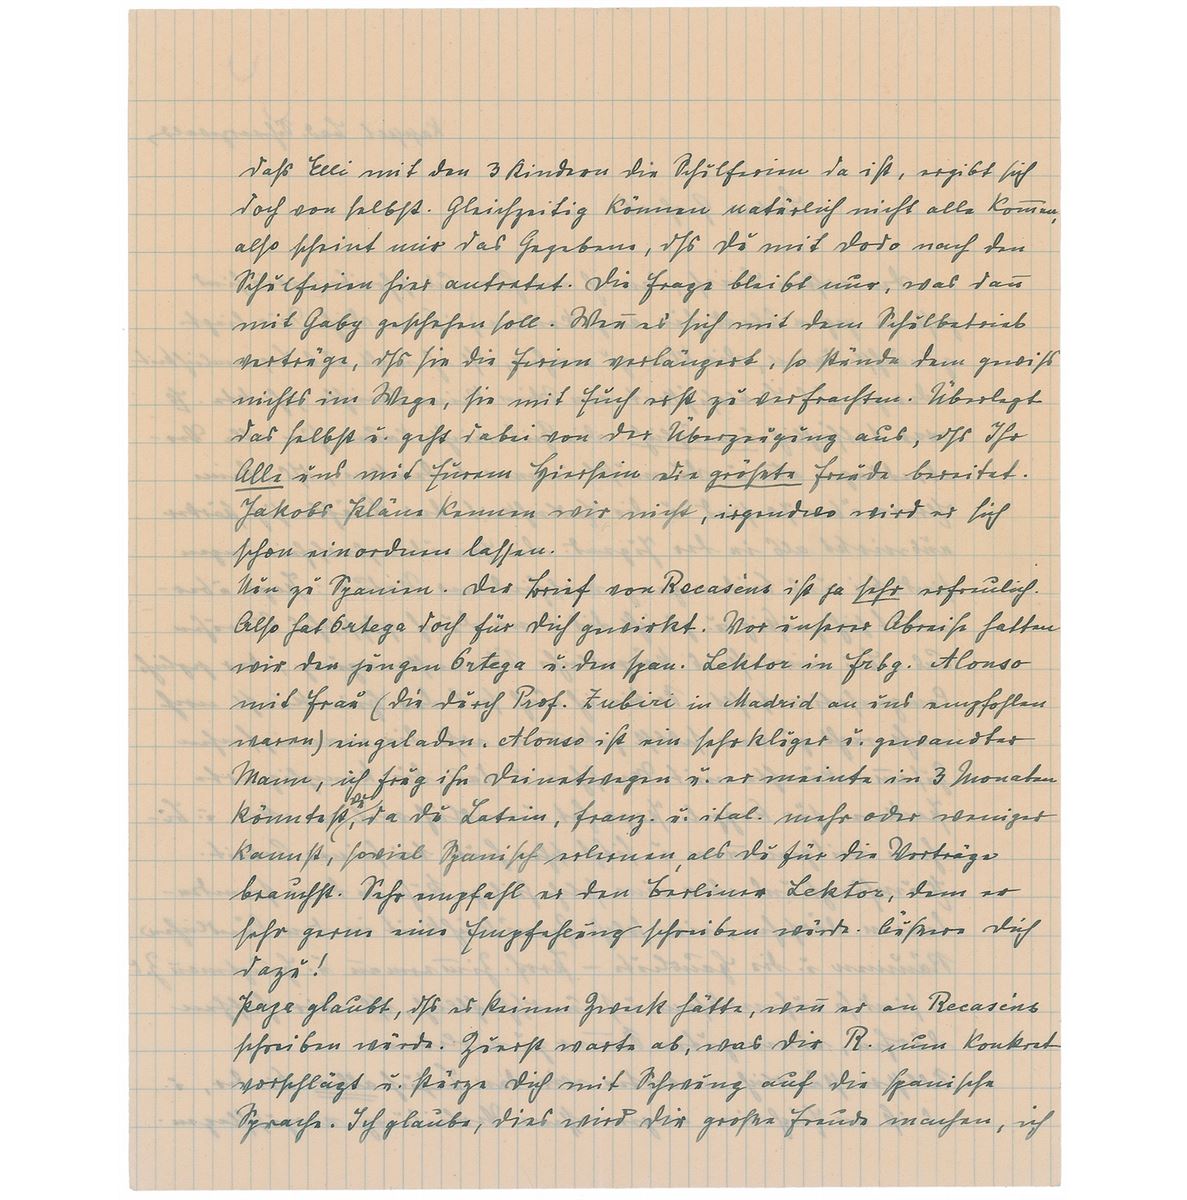 daß Elli mit den 3 Kindern die Schulferien da ist, ergibt sich
doch von selbst. Gleichzeitig können natürlich nicht alle kom̅en,
also scheint mir das Gegebene, dß Du mit Dodo nach den
Schulferien hier antretet. Die Frage bleibt nur, was dan̅
mit Gaby geschehen soll. Wen̅ es sich mit dem Schulbetrieb
vertrüge, dß sie die Ferien verlängert, so stünde dem gewiß
nichts im Wege, sie mit Euch erst zu verfrachten. Überlegt
das selbst u. geht dabei von der Überzeugung aus, dß Ihr
Alle uns mit Eurem Hiersein die größte Freude bereitet.
Jakobs Pläne kennen wir nicht, irgendwo wird er sich
schon einordnen lassen.
Nun zu Spanien. Der Brief von Recaséns ist ja sehr erfreulich.
Also hat Ortega doch für Dich gewirkt. Vor unserer Abreise hatten
wir den jungen Ortega u. den span. Lektor in Frbg. Alonso
mit Frau (die durch Prof. Zubiri in Madrid an uns empfohlen
waren) eingeladen. Alonso ist ein sehr kluger u. gewandter
Mann, ich frug ihn Deinetwegen u. er meinte in 3 Monaten
könntest du, da du Latein, franz. u. ital. mehr oder weniger
kannst, soviel Spanisch erlernen, als du für die Vorträge
brauchst. Sehr empfahl er den Berliner Lektor, dem er
sehr gerne eine Empfehlung schreiben würde. Äußere Dich
dazu!
Papa glaubt, dß es keinen Zweck hätte, wen̅ er an Recaséns
schreiben würde. Zuerst warte ab, was dir R. nun konkret
vorschlägt u. stürze Dich mit Schwung auf die spanische
Sprache. Ich glaube, dies wird Dir große Freude machen, ich